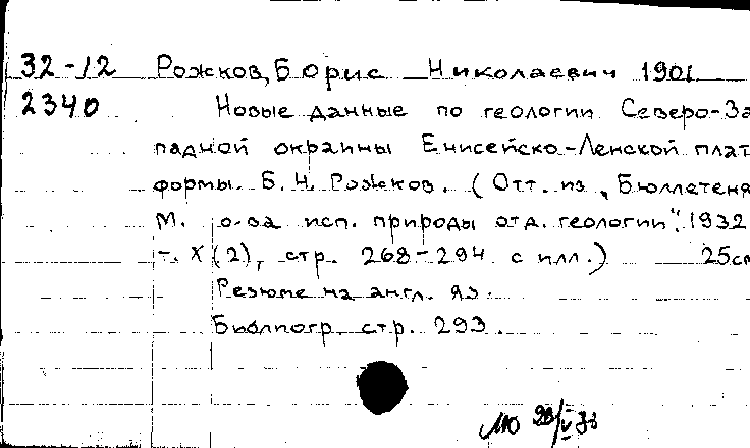 32-12 Рожков, Борис Николаевич 1901
2340 Новые данные по геологии Северо-За
падной окраины Енисейско-Ленской плат
формы. Б. Н. Рожков. (Отт. из „Бюллетеня
М. о-ва исп. природы отд. геологии". 1932
т. X (2), стр. 268-294 с илл.) 25см
Резюме на англ. яз.
Библиогр. стр. 293.